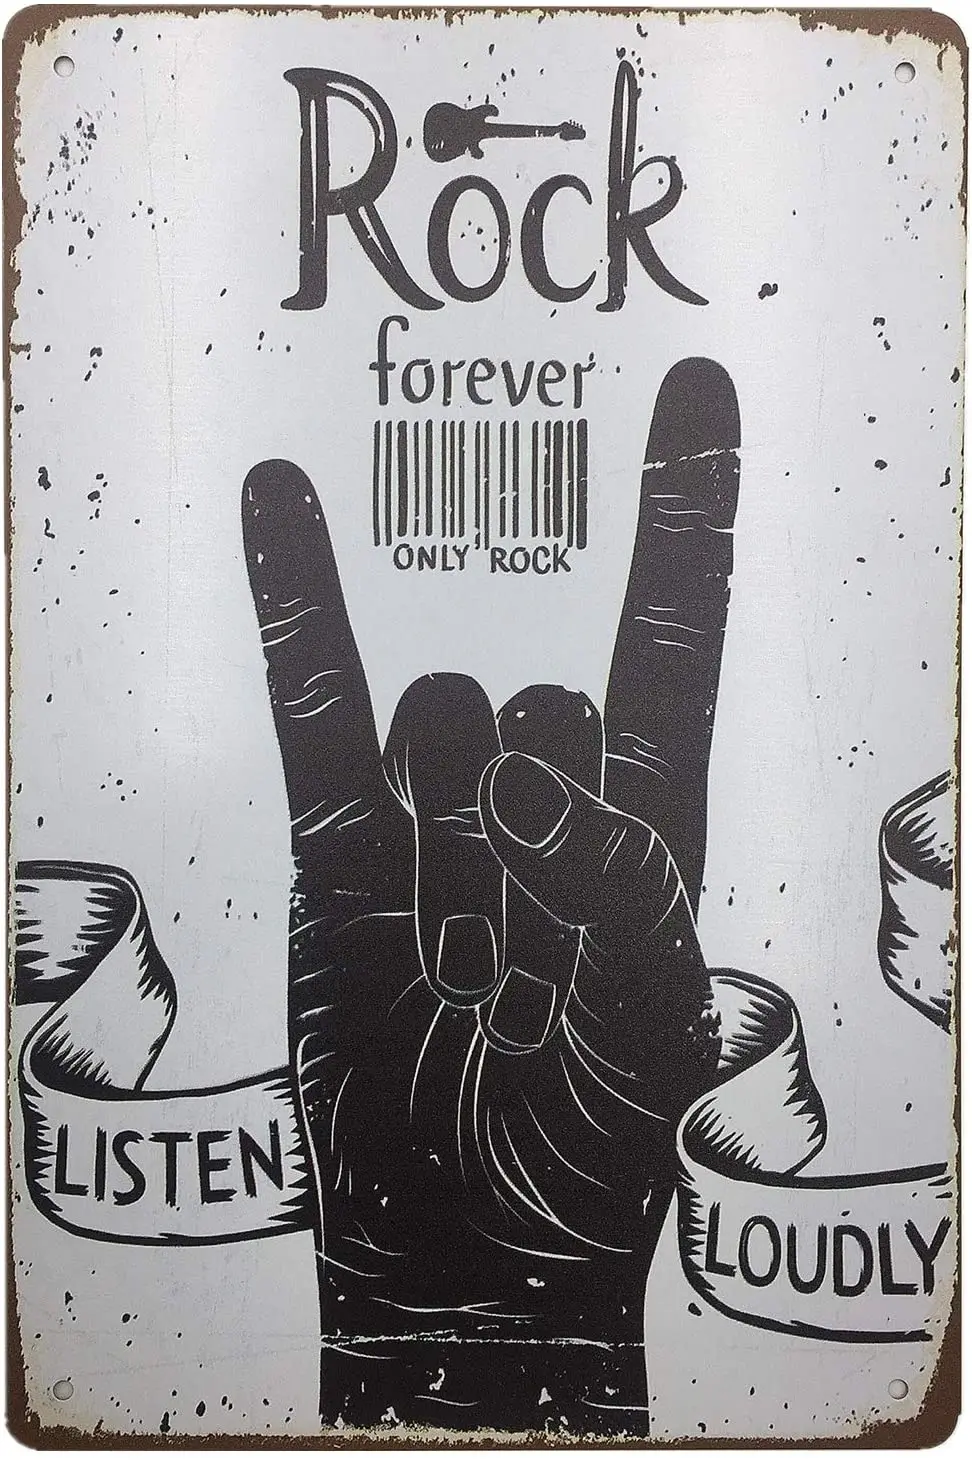 Rock
forever
ONLY ROCK
LISTEN
LOUDLY